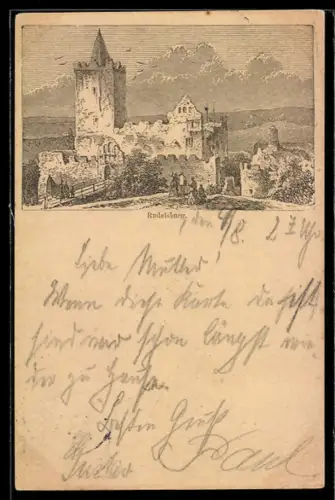 Rudelsburg.
den 4/8. 2 7 Uhr
Liebe Mutter!
Wenn diese Karte da ist,
sind wir schon längst wie-
der zu Hause.
Besten Gruß
Paul